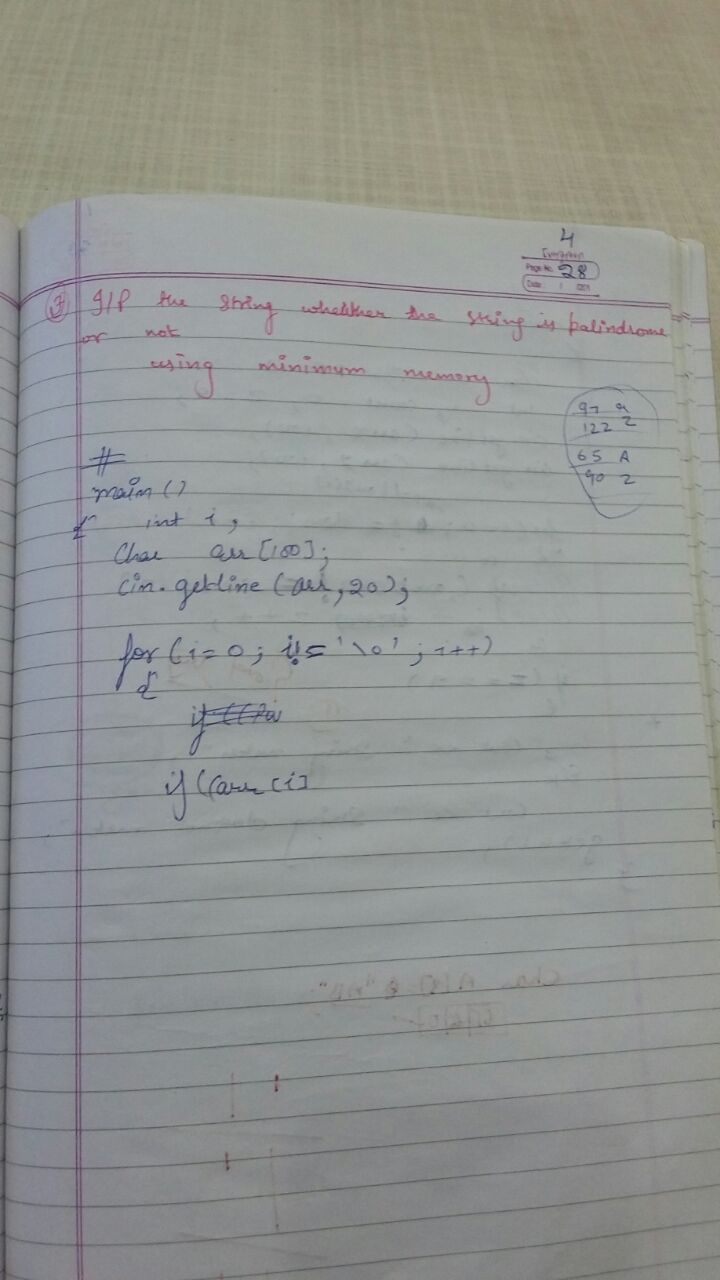 4
Page No. 28
Date
7 I/P the string whelther the string is palindrome
or not
using minimum memory
97 a
122 z
65 A
90 Z
#
main ()
{ int i,
Char arr [100];
cin.getline (arr, 20);
for (i=0; i!='\0' ; i++)
{
if ((
if ((arr [i]